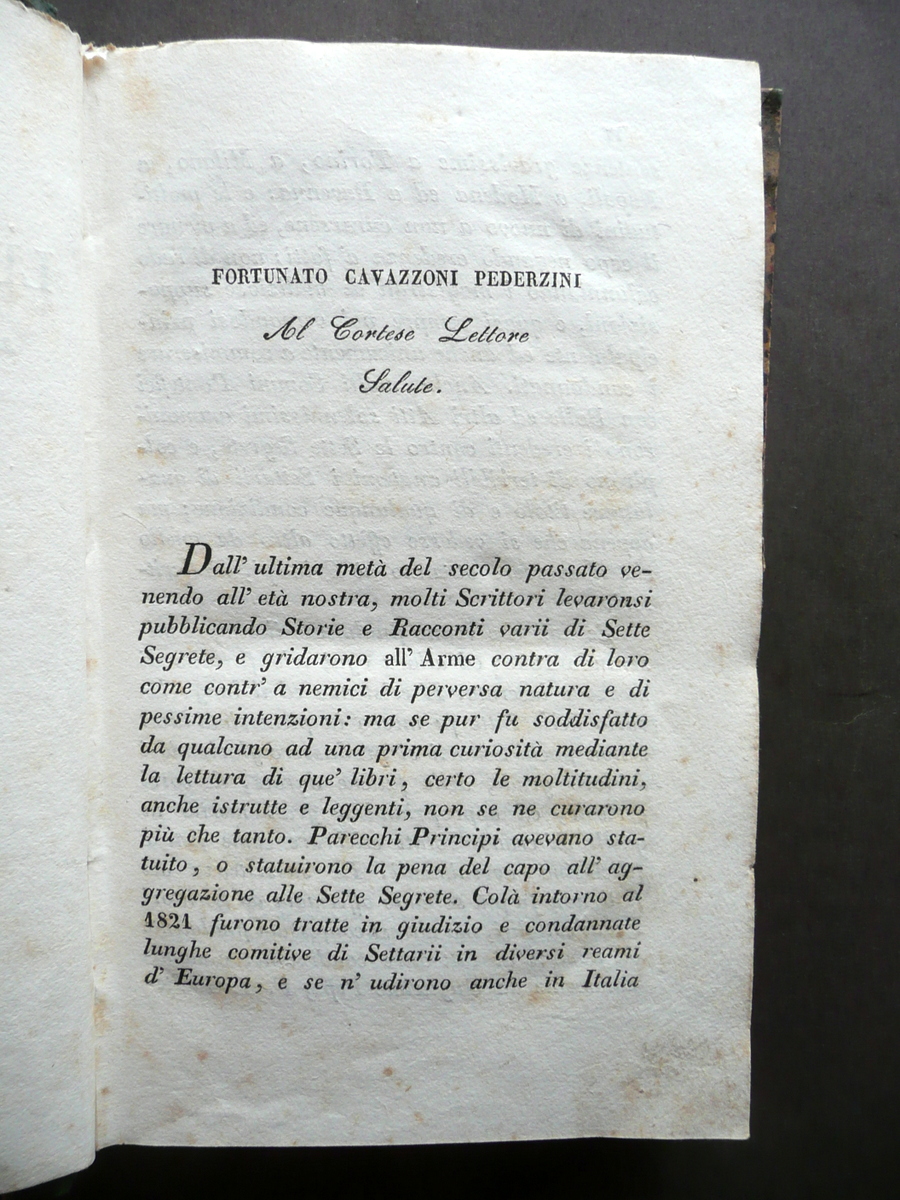 FORTUNATO CAVAZZONI PEDERZINI
Al Cortese Lettore
Salute.
Dall' ultima metà del secolo passato ve-
nendo all' età nostra, molti Scrittori levaronsi
pubblicando Storie e Racconti varii di Sette
Segrete, e gridarono all' Arme contra di loro
come contr' a nemici di perversa natura e di
pessime intenzioni: ma se pur fu soddisfatto
da qualcuno ad una prima curiosità mediante
la lettura di que' libri, certo le moltitudini,
anche istrutte e leggenti, non se ne curarono
più che tanto. Parecchi Principi avevano sta-
tuito, o statuirono la pena del capo all' ag-
gregazione alle Sette Segrete. Colà intorno al
1821 furono tratte in giudizio e condannate
lunghe comitive di Settarii in diversi reami
d' Europa, e se n' udirono anche in Italia